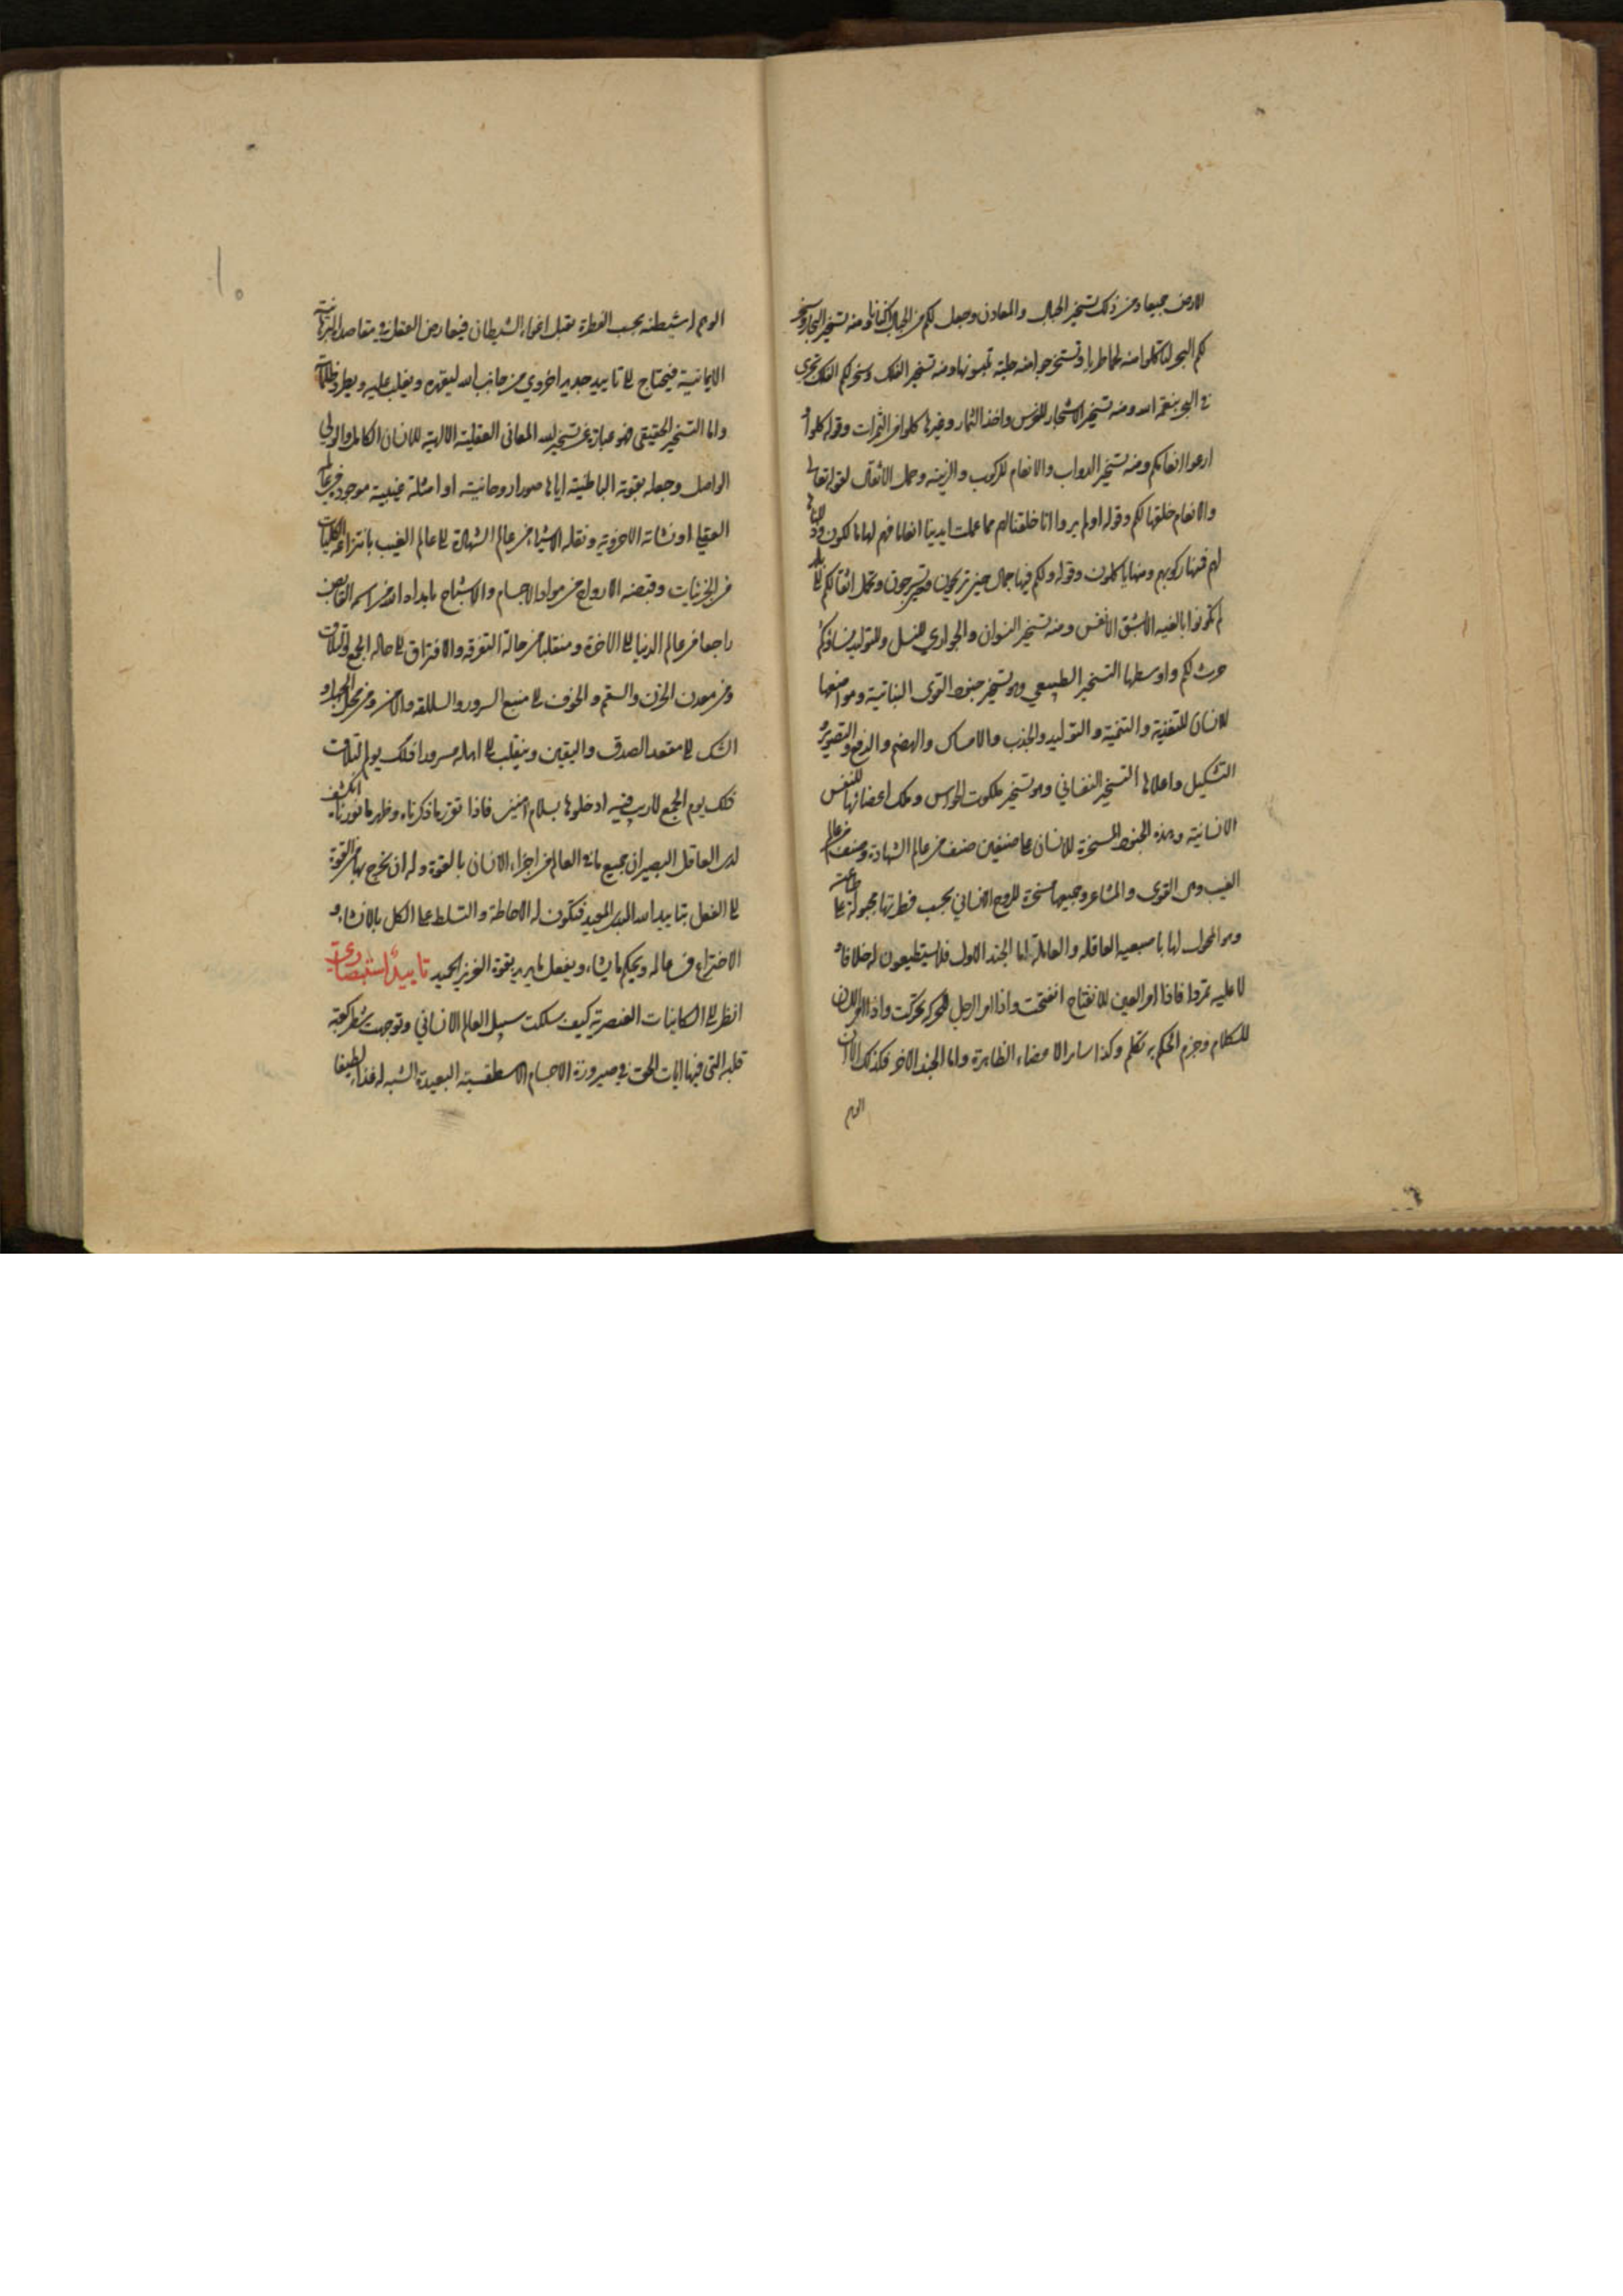 الارض جميعا ومن ذلك تسخير الجبال والمعادن وجعل لكم من الجبال اكنانا ومنه تسخير البحار وسخر
لكم البحر لتاكلوا منه لحما طريا وتستخرجوا منه حلية تلبسونها ومنه تسخير الفلك وسخر لكم الفلك تجري
في البحر بنعمة الله ومنه تسخير الاشجار للغرس واخذ الثمار وغيرها كلوا من الثمرات وقوله كلوا و
ارعوا انعامكم ومنه تسخير الدواب والانعام للركوب والزينه وحمل الاثقال لقوله تعالى
والانعام خلقها لكم وقوله اولم يروا انا خلقنا لهم مما عملت ايدينا انعاما فهم لها مالكون وذللناها
لهم فمنها ركوبهم ومنها ياكلون وقوله ولكم فيها جمال حين تريحون وحين تسرحون وتحمل اثقالكم الى بلد
لم تكونوا بالغيه الا بشق الانفس ومنه تسخير النسوان والجواري للنسل والتوليد نساؤكم
حرث لكم واوسطها التسخير الطبيعي وهو تسخير جنود القوى النباتية ومواضعها
للانسان للتغذية والتنمية والتوليد والجذب والامساك والهضم والدفع والتصوير و
التشكيل واعلاها التسخير النفساني وهو تسخير ملكوت الحواس وملك اعضائها للنفس
الانسانية وهذه الجنود المسخرة للانسان على صنفين صنف من عالم الشهادة وصنف من عالم
الغيب وهي القوى والمشاعر وجميعها مسخرة للروح الانساني بحسب فطرتها مجبولة على طاعته
وهو المحرك لها باصبعيه العاقله والعاملة اما الجند الاول فلا يستطيعون له خلافا و
لا عليه تمردا فاذا امر العين للانفتاح انفتحت واذا امر الرجل للحركة تحركت واذا امر اللسان
للكلام وجزم الحكم به تكلم وكذا سائر الاعضاء الظاهرة واما الجند الاخر فكذلك الا ان
الوهم
١٠
الوهم له شيطنه بحسب الفطرة يقبل اغواء الشيطان فيعارض العقل في مقاصد البرهانية
الايمانية فيحتاج الى تاييد جديد اخروي من جانب الله ليقهره ويغلب عليه ويطرد ظلماته
واما التسخير الحقيقي فهو عبارة عن تسخير الله المعاني العقلية الالهية للانسان الكامل والولي
الواصل وجعله بقوته الباطنية اياها صورا روحانية او امثلة غيبية موجودة في عالمه
العقلي او نشاته الاخروية ونقله الاشياء من عالم الشهادة الى عالم الغيب بانتزاعه الكليات
من الجزئيات وقبضه الارواح من مواد الاجسام والاشباح بامداد الله من اسمه القابض
راجعا من عالم الدنيا الى الاخرة ومنتقلا من حالة التفرقه والافتراق الى حاله الجمع والتلاق
ومن معدن الحزن والسقم والخوف الى منبع السرور والسلامة والامن ومن محل الجهل و
الشك الى مقعد الصدق واليقين وينقلب الى اهله مسرورا فذلك يوم التلاق
ذلك يوم الجمع لا ريب فيه ادخلوها بسلام امنين فاذا تقرر ما ذكرناه وظهر ما نورناه انكشف
لدى العاقل البصير ان جميع ما في العالم من اجزاء الانسان بالقوة وله ان يخرج بها من القوة
الى الفعل بتاييد الله المبدئ المعيد فتكون له الاحاطة والتسلط على الكل بالانشاء و
الاختراع في عالمه ويحكم ما يشاء ويفعل ما يريد بقوة العزيز الحميد تاييد استبصاري
انظر الى الكاينات العنصرية كيف سلكت سبيل العالم الانساني وتوجهت شطر كعبة
قلبه التي فيها ايات الحق في صيرورة الاجسام الاسطقسية البعيدة الشبه له غذاء لطيفا